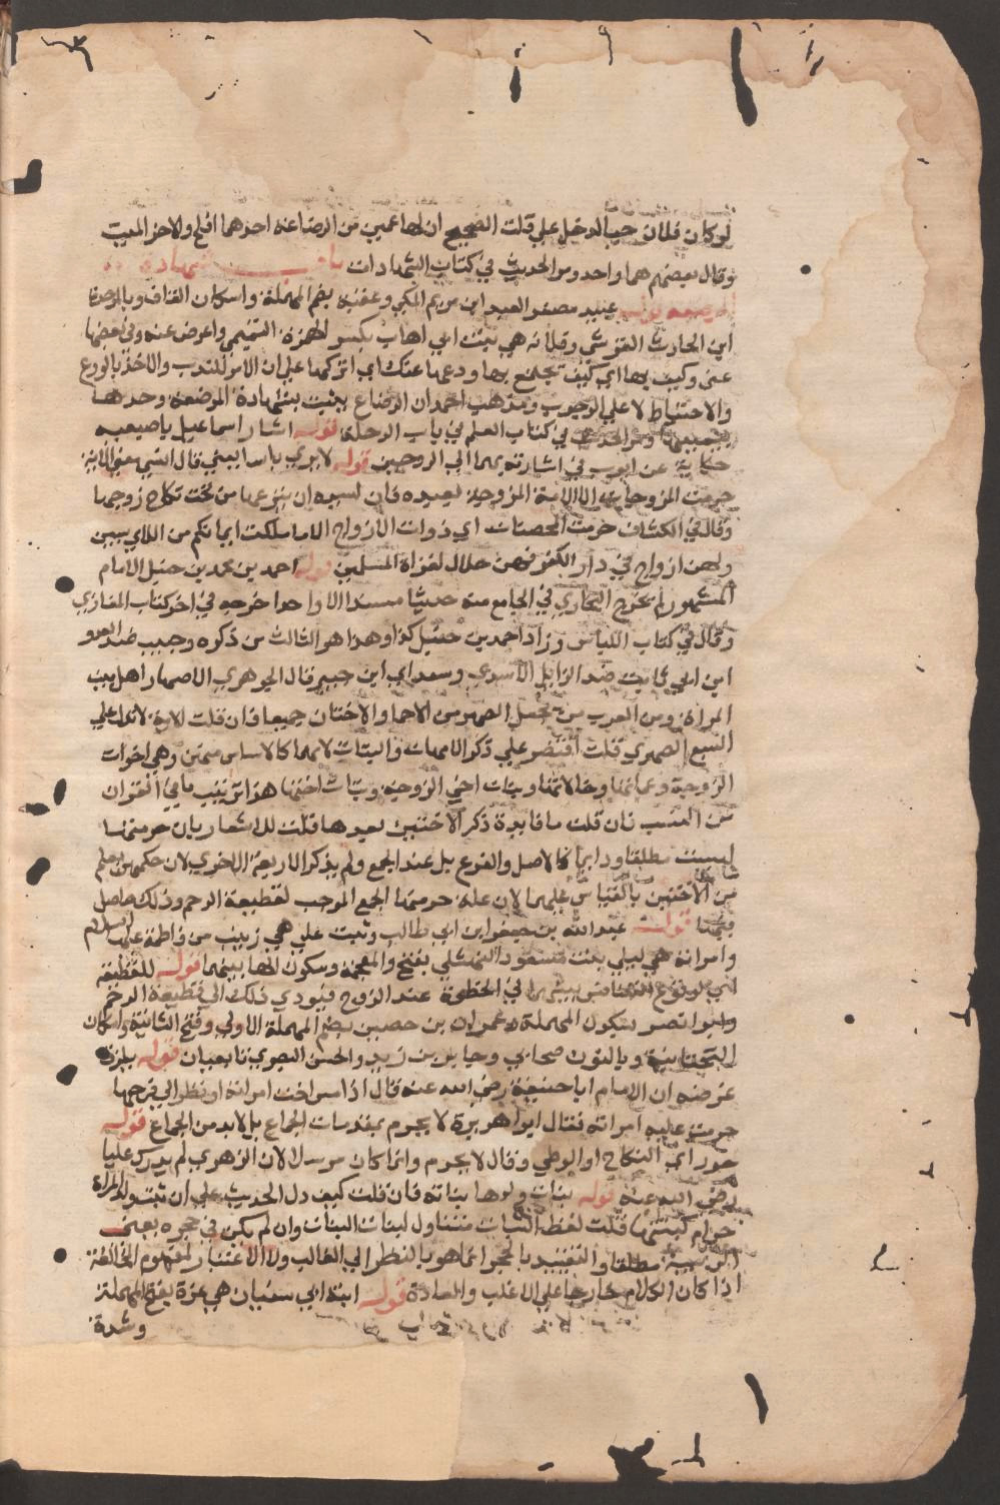 لو كان فلان حيا لدخل علي قلت الصحيح ان لها عمين من الرضاعة احدهما افلح والاخر الميت
وقال بعضهم هما واحد ومر الحديث في كتاب الشهادات باب شهادة
المرضعة قوله عبيد مصغر العبد ابن مريم المكي وعقبة بضم المهملة واسكان القاف وبالموحدة
ابن الحارث القرشي وفلانة هي بنت ابي اهاب بكسر الهمزة التميمي واعرض عنه وفي بعضها
عني وكيف بها اي كيف تجتمع بها ودعها عنك اي اتركها علي ان الامر للندب والاخذ بالورع
والاحتياط لا علي الوجوب ومذهب احمد ان الرضاع يثبت بشهادة المرضعة وحدها
بيمينها ومر الحديث في كتاب العلم في باب الرحلة قوله اشار اسماعيل باصبعيه
حكاية عن ايوب في اشارته بهما الي الزوجين قوله لا يري باسا يعني قال انس معني الاية
حرمت المزوجات الا الامة المزوجة لعبده فان لسيده ان ينزعها من تحت نكاح زوجها
وقال في الكشاف حرمت المحصنات اي ذوات الازواج الا ما ملكت ايمانكم من اللاي سبين
ولهن ازواج في دار الكفر فهن حلال لغزاة المسلمين قوله احمد بن محمد بن حنبل الامام
المشهور لم يخرج البخاري في الجامع منه حديثا مسندا الا واحدا خرجه في اخر كتاب المغازي
وقال في كتاب اللباس وزاد احمد بن حنبل كذا وهذا هو الثالث من ذكره وحبيب ضد العدو
ابن ابي ثابت ضد الزايل الاسدي وسعد اي ابن جبير قال الجوهري الاصهار اهل بيت
المراة ومن العرب من يجعل الصهر من الاحما والاختان جميعا فان قلت الاية لا تدل علي
السبع الصهري قلت اقتصر علي ذكر الامهات والبنات لانهما كالاساس منهن وهي اخوات
الزوجة وعماتها وخالاتها وبنات اخي الزوجة وبنات اختها هذا ترتيب ما في القران
من النسب فان قلت ما فايدة ذكر الاختين بعدها قلت للاشعار بان حرمتها
ليست مطلقا ودايما كالاصل والفرع بل عند الجمع ولم يذكر الاربعة الاخري لان حكمهن يعلم
من الاختين بالقياس عليهما لان علة حرمتها الجمع الموجب لقطيعة الرحم وذلك حاصل
فيها قوله عبد الله بن جعفر ابن ابي طالب وبنت علي هي زينب من فاطمة عليها السلام
وامراته هي ليلي بنت مسعود النهشلي بفتح والمعجمة وسكون الها بينهما قوله للقطيعة
اي لوقوع التنافس بينهما في الحظوة عند الزوج فيودي ذلك الي قطيعة الرحم
وابو نصر بسكون المهملة وعمران بن حصين بضم المهملة الاولي وفتح الثانية واسكان
التحتانية وبالنون صحابي وجابر بن زيد والحسن البصري تابعيان قوله يلزق
غرضه ان الامام ابا حنيفة رضي الله عنه قال اذا مس اخت امراته او نظر الي فرجها
حرمت عليه امراته فقال ابو هريرة لا يحرم بمقدمات الجماع بل لابد من الجماع قوله
جوز اي النكاح او الوطي وقال لا يحرم وانما كان مرسلا لان الزهري لم يدرك عليا
رضي الله عنه قوله بنات ولدها بناته فان قلت كيف دل الحديث علي ان بنت ولد المراة
حرام كبنتها قلت لفظ البنات متناول لبنات البنات وان لم يكن في حجره يعني
الربيبة مطلقا والتقييد بالحجر انما هو بالنظر الي الغالب ولا اعتبار لمفهوم المخالفة
اذا كان الكلام خارجا علي الاغلب والعادة قوله ابنة ابي سفيان هي عزة بفتح المهملة
وشدة